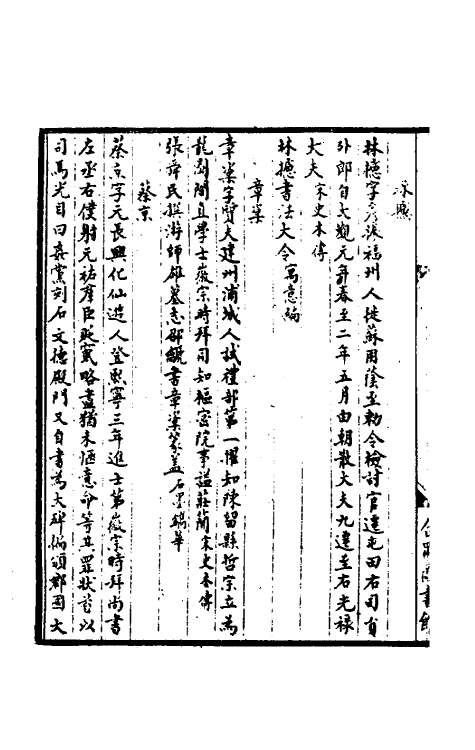 林攄
林攄字彥振福州人徙蘇用蔭至勅令檢討官遷屯田右司員
外郎自大觀元年春至二年五月由朝散大夫九遷至右光祿
大夫宋史本傳
林攄書法大令寓意編
章楶
章楶字質夫建州浦城人試禮部第一擢知陳留縣哲宗立為
龍圖閣直學士徽宗時拜同知樞密院事謚莊簡宋史本傳
張舜民撰游師雄墓志邵䶵書章楶篆蓋石墨鐫華
蔡京
蔡京字元長興化仙遊人登熙寧三年進士第徽宗時拜尚書
左丞右僕射元祐羣臣貶竄略盡猶未愜意命等其罪狀首以
司馬光目曰姦黨刻石文德殿門又自書為大碑徧頒郡國大